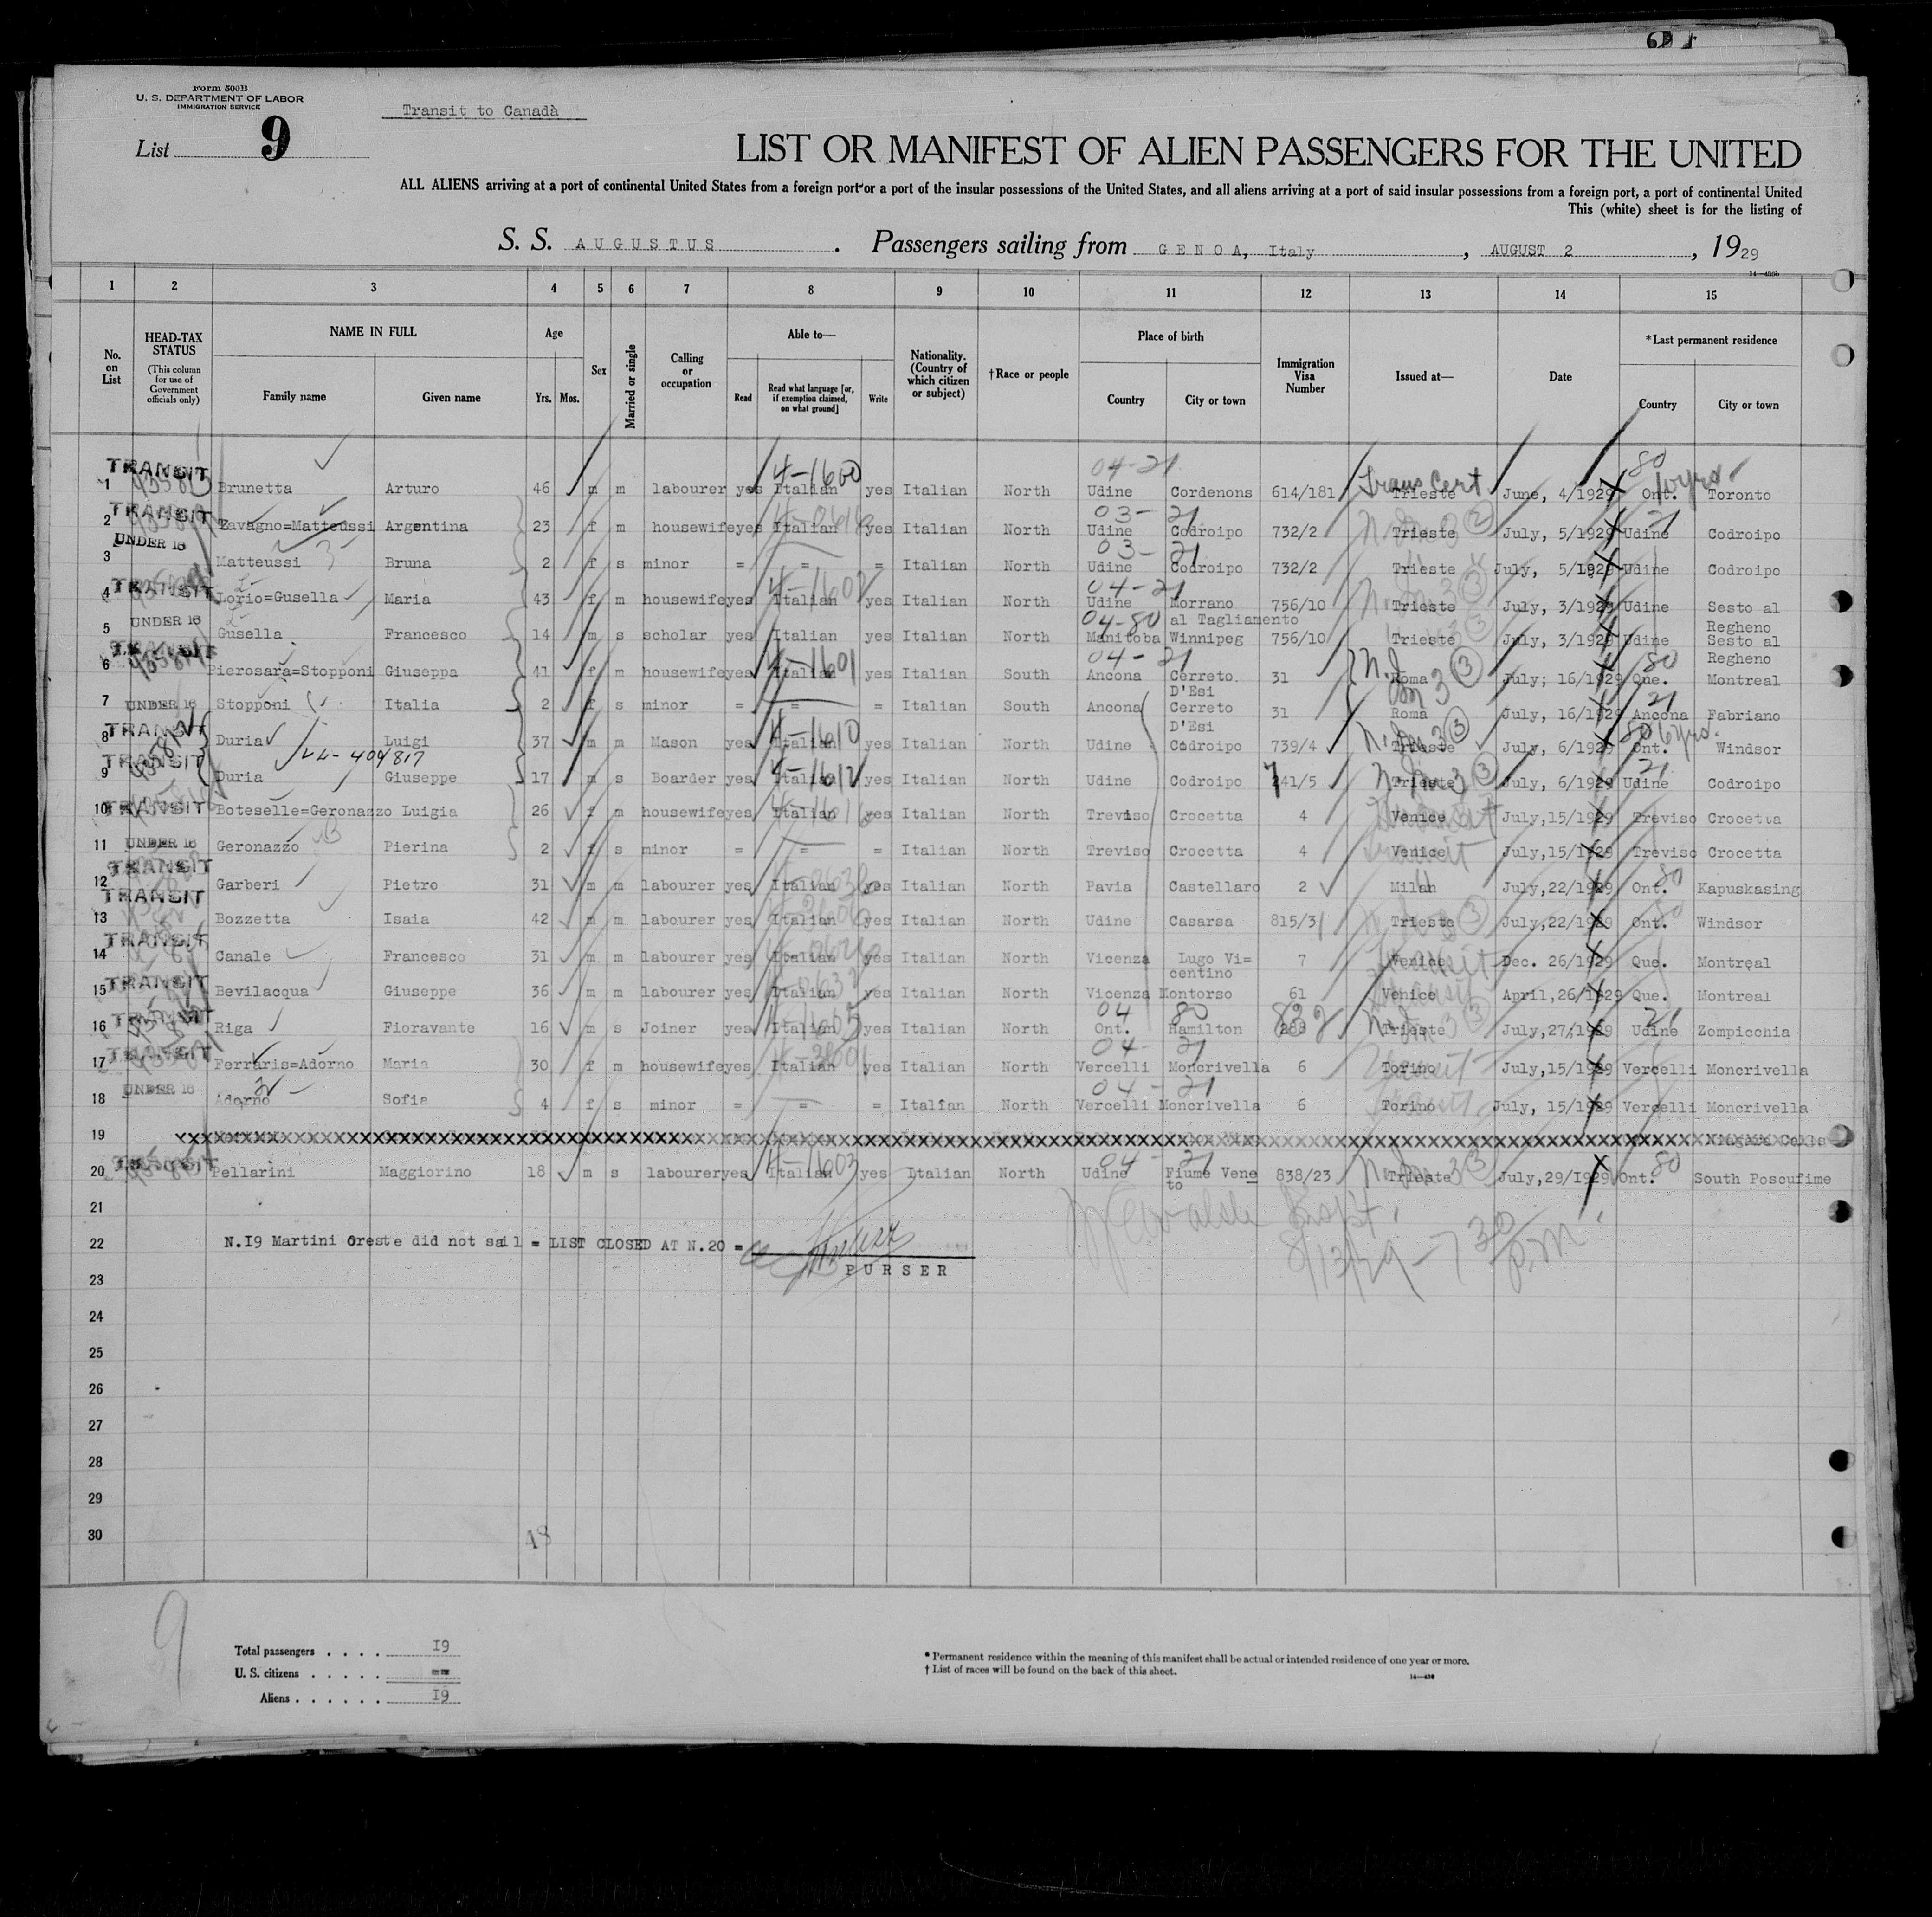 Form 500B
U. S. DEPARTMENT OF LABOR
IMMIGRATION SERVICE
Transit to Canadà
List 9
LIST OR MANIFEST OF ALIEN PASSENGERS FOR THE UNITED
ALL ALIENS arriving at a port of continental United States from a foreign port or a port of the insular possessions of the United States, and all aliens arriving at a port of said insular possessions from a foreign port, a port of continental United
This (white) sheet is for the listing of
S. S. AUGUSTUS . Passengers sailing from GENOA, Italy , AUGUST 2 , 1929
1 2 3 4 5 6 7 8 9 10 11 12 13 14 15
No. on List HEAD-TAX STATUS (This column for use of Government officials only) NAME IN FULL Family name Given name Age Yrs. Mos. Sex Married or single Calling or occupation Able to— Read Read what language [or, if exemption claimed, on what ground] Write Nationality. (Country of which citizen or subject) †Race or people Place of birth Country City or town Immigration Visa Number Issued at— Date *Last permanent residence Country City or town
TRANSIT 4-1600 04-21 Trans Cert 80 10yrs
1 Brunetta Arturo 46 m m labourer yes Italian yes Italian North Udine Cordenons 614/181 Trieste June, 4/1929 Ont. Toronto
TRANSIT 03- 21 21
2 Zavagno=Matteussi Argentina 23 f m housewife yes Italian yes Italian North Udine Codroipo 732/2 Trieste July, 5/1929 Udine Codroipo
UNDER 16 03- 21
3 Matteussi Bruna 2 f s minor = = = Italian North Udine Codroipo 732/2 Trieste July, 5/1929 Udine Codroipo
TRANSIT 4-1602 04-21
4 Lorio=Gusella Maria 43 f m housewife yes Italian yes Italian North Udine Morrano al Tagliamento 756/10 Trieste July, 3/1929 Udine Sesto al Regheno
UNDER 16 04-80
5 Gusella Francesco 14 m s scholar yes Italian yes Italian North Manitoba Winnipeg 756/10 Trieste July, 3/1929 Udine Sesto al Regheno
4-1601 04-21 80
6 Pierosara=Stopponi Giuseppa 41 f m housewife yes Italian yes Italian South Ancona Cerreto D'Esi 31 Roma July; 16/1929 Que. Montreal
UNDER 16 21
7 Stopponi Italia 2 f s minor = = = Italian South Ancona Cerreto D'Esi 31 Roma July, 16/1929 Ancona Fabriano
TRANSIT 4-1610 80 6yrs.
8 Duria Luigi 37 m m Mason yes Italian yes Italian North Udine Codroipo 739/4 Trieste July, 6/1929 Ont. Windsor
TRANSIT 404817 4-1612 21
9 Duria Giuseppe 17 m s Boarder yes Italian yes Italian North Udine Codroipo 741/5 Trieste July, 6/1929 Udine Codroipo
10 TRANSIT Boteselle=Geronazzo Luigia 26 f m housewife yes Italian yes Italian North Treviso Crocetta 4 Venice July,15/1929 Treviso Crocetta
11 UNDER 16 Geronazzo Pierina 2 f s minor = = = Italian North Treviso Crocetta 4 Venice July,15/1929 Treviso Crocetta
TRANSIT 80
12 Garberi Pietro 31 m m labourer yes Italian yes Italian North Pavia Castellaro 2 Milan July,22/1929 Ont. Kapuskasing
TRANSIT
13 Bozzetta Isaia 42 m m labourer yes Italian yes Italian North Udine Casarsa 815/3 Trieste July,22/1929 Ont. Windsor
TRANSIT
14 Canale Francesco 31 m m labourer yes Italian yes Italian North Vicenza Lugo Vi=centino 7 Venice Dec. 26/1929 Que. Montreal
TRANSIT
15 Bevilacqua Giuseppe 36 m m labourer yes Italian yes Italian North Vicenza Montorso 61 Venice April,26/1929 Que. Montreal
TRANSIT 04 80 832 21
16 Riga Fioravante 16 m s Joiner yes Italian yes Italian North Ont. Hamilton Trieste July,27/1929 Udine Zompicchia
TRANSIT 04- 21
17 Ferraris=Adorno Maria 30 f m housewife yes Italian yes Italian North Vercelli Moncrivella 6 Torino July,15/1929 Vercelli Moncrivella
UNDER 16 04-21
18 Adorno Sofia 4 f s minor = = = Italian North Vercelli Moncrivella 6 Torino July, 15/1929 Vercelli Moncrivella
19
TRANSIT 4-1603 04-21 80
20 Pellarini Maggiorino 18 m s labourer yes Italian yes Italian North Udine Fiume Veneto 838/23 Trieste July,29/1929 Ont. South Poscufime
21
22 N.I9 Martini Oreste did not sail = LIST CLOSED AT N.20 =
8/13/29 - 7 30 P.M.
PURSER
23
24
25
26
27
28
29
30
48
9
Total passengers . . . . I9
U. S. citizens . . . . . ==
Aliens . . . . . . I9
* Permanent residence within the meaning of this manifest shall be actual or intended residence of one year or more.
† List of races will be found on the back of this sheet.